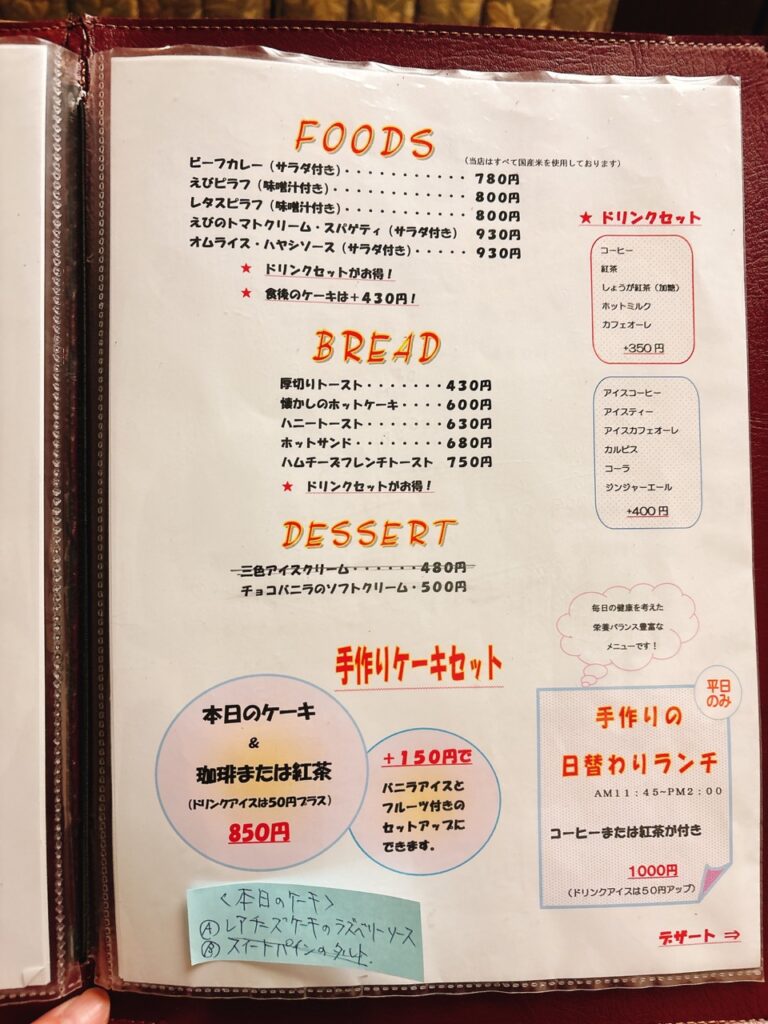 FOODS
(当店はすべて国産米を使用しております)
ビーフカレー(サラダ付き)・・・・・・・・・・・780円
えびピラフ(味噌汁付き)・・・・・・・・・・・・800円
レタスピラフ(味噌汁付き)・・・・・・・・・・・800円
えびのトマトクリーム・スパゲティ(サラダ付き) 930円
オムライス・ハヤシソース(サラダ付き)・・・・・930円
★ ドリンクセットがお得!
★ 食後のケーキは+430円!
BREAD
厚切りトースト・・・・・・・・430円
懐かしのホットケーキ・・・・600円
ハニートースト・・・・・・・630円
ホットサンド・・・・・・・・680円
ハムチーズフレンチトースト 750円
★ ドリンクセットがお得!
DESSERT
三色アイスクリーム・・・・・・480円
チョコバニラのソフトクリーム・500円
★ ドリンクセット
コーヒー
紅茶
しょうが紅茶(加糖)
ホットミルク
カフェオーレ
+350円
アイスコーヒー
アイスティー
アイスカフェオーレ
カルピス
コーラ
ジンジャーエール
+400円
手作りケーキセット
本日のケーキ
&
珈琲または紅茶
(ドリンクアイスは50円プラス)
850円
+150円で
バニラアイスと
フルーツ付きの
セットアップに
できます。
毎日の健康を考えた
栄養バランス豊富な
メニューです!
平日
のみ
手作りの
日替わりランチ
AM11:45~PM2:00
コーヒーまたは紅茶が付き
1000円
(ドリンクアイスは50円アップ)
<本日のケーキ>
Ⓐ レアチーズケーキのラズベリーソース
Ⓑ スイートパインのタルト
デザート ⇒